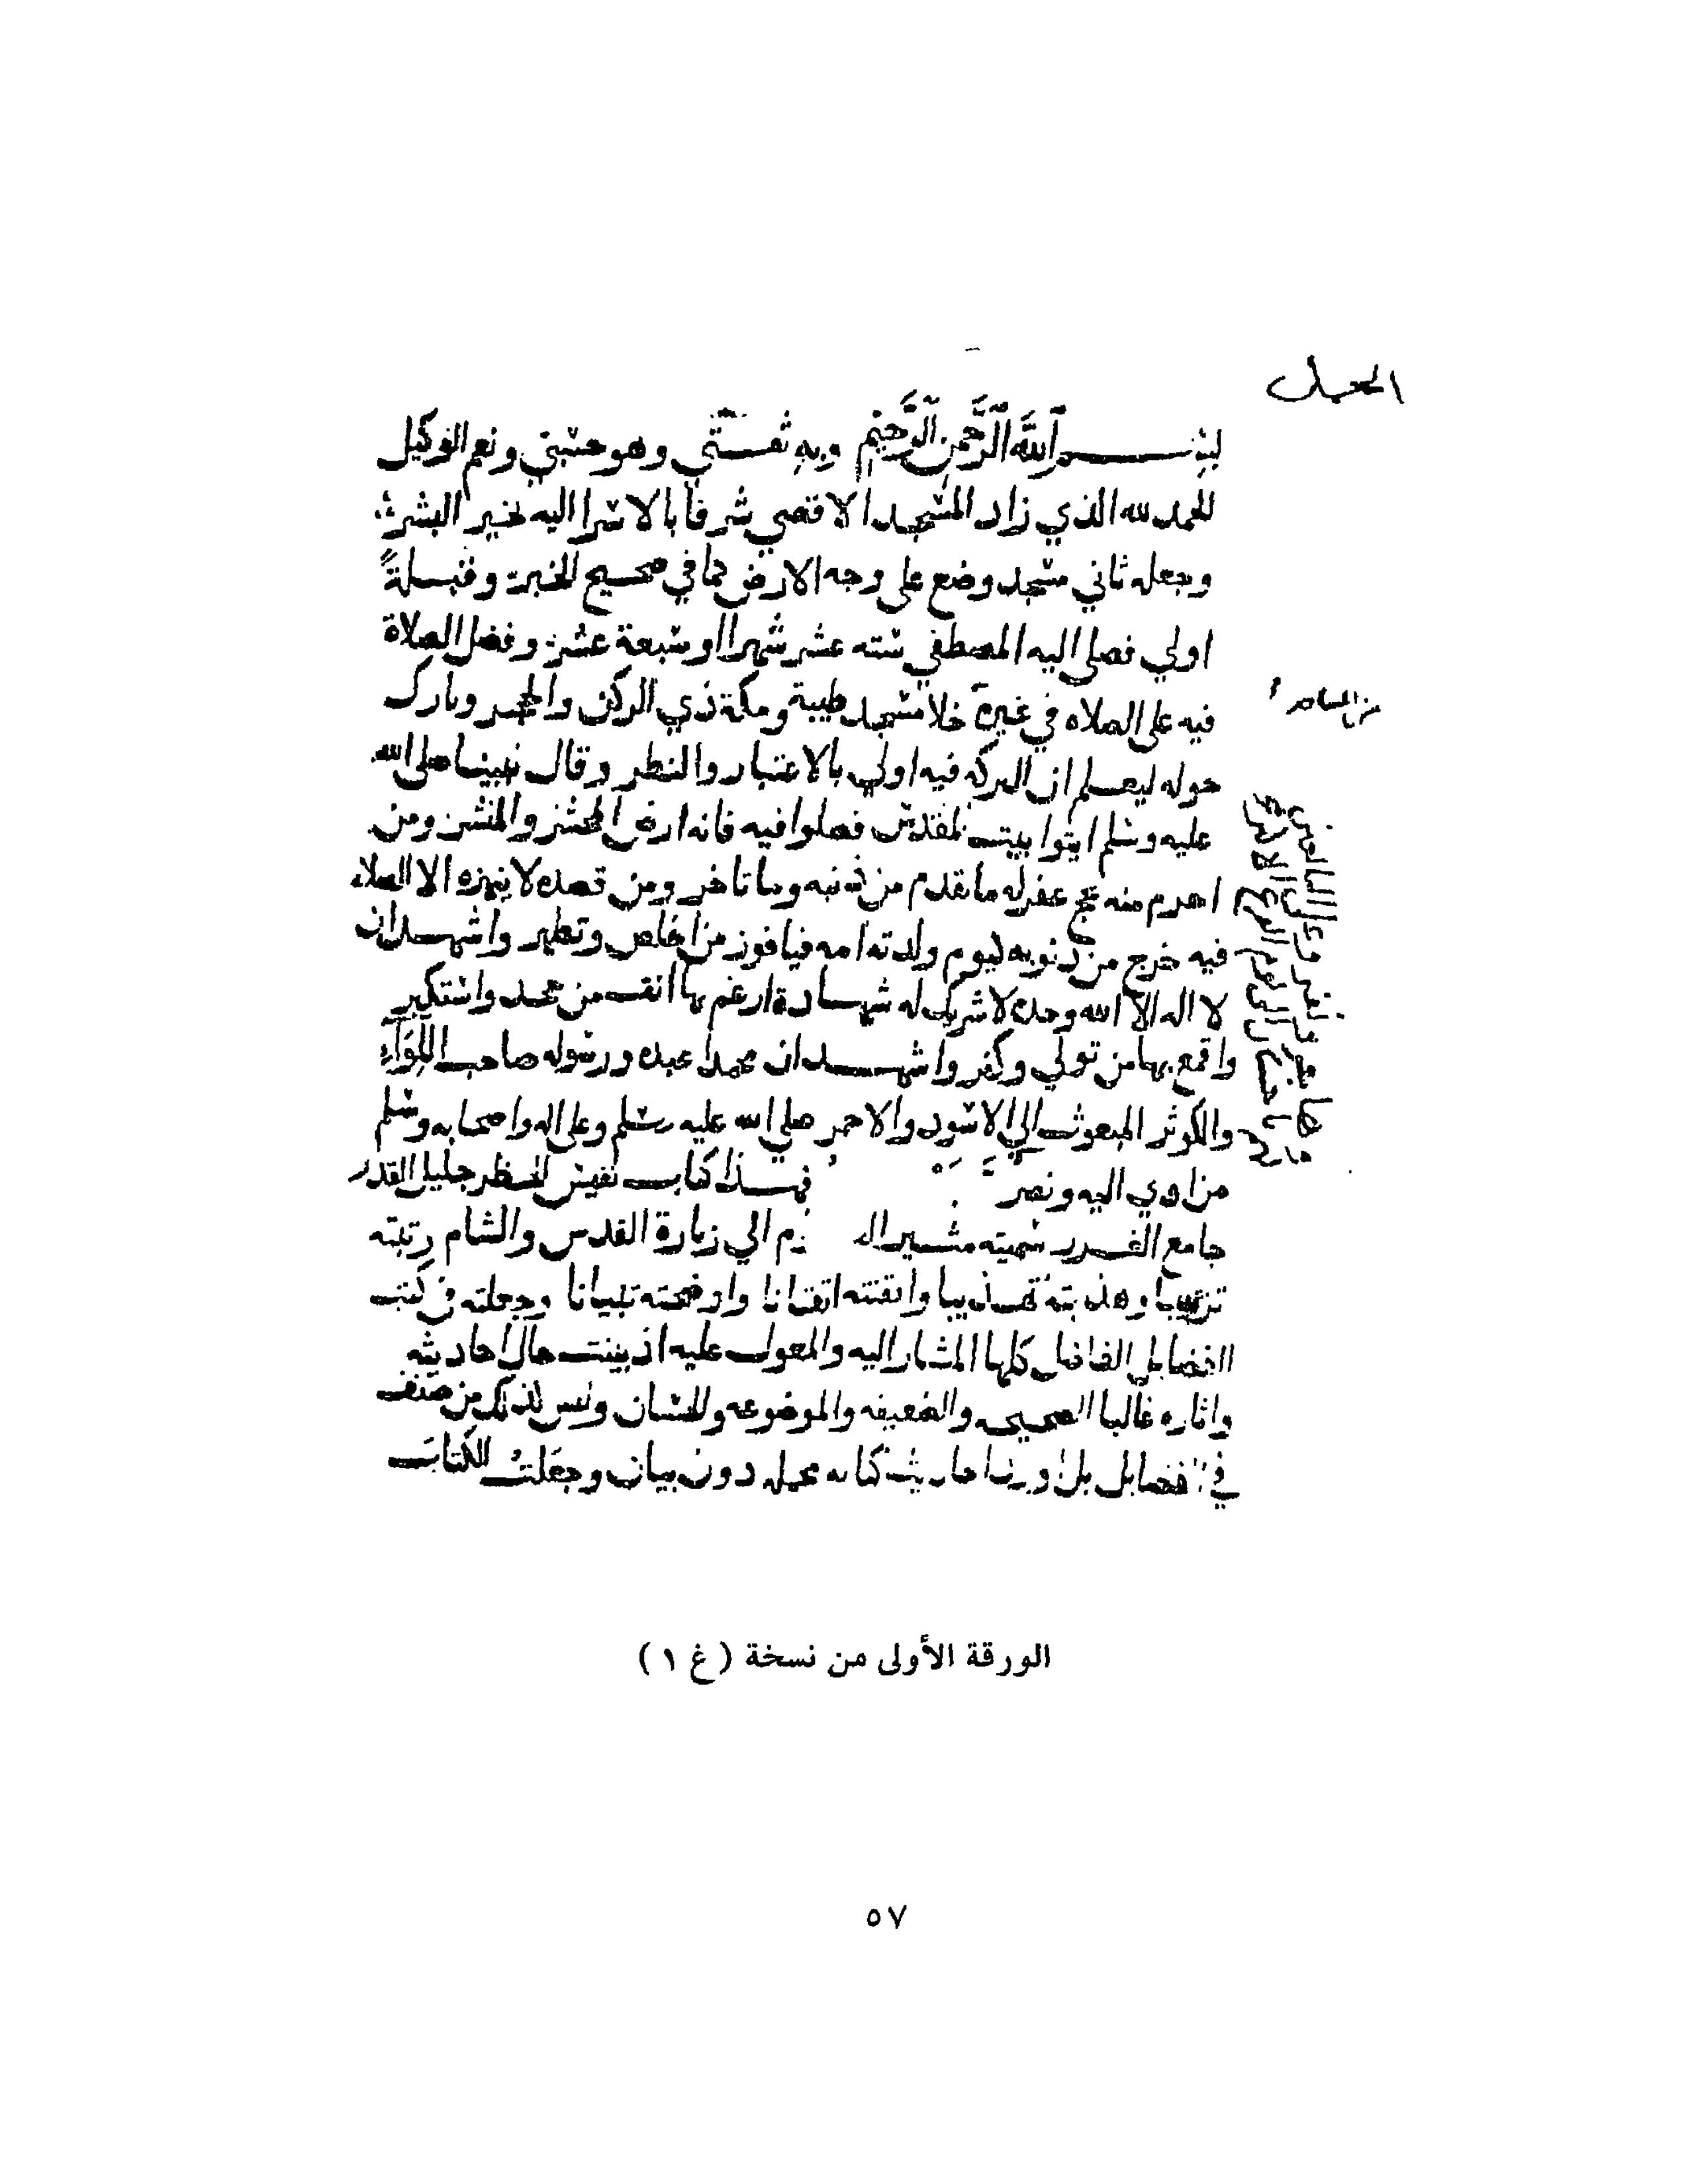 بسم اللهِ الرَّحمنِ الرَّحيمِ وبه ثقتي وهو حسبي ونعم الوكيل
الحمد لله الذي زاد المسجد الاقصي شرفا بالاسرا اليه بخير البشر
وجعله ثاني مسجد وضع على وجه الارض كما في صحيح الخبر وقبلةً
اولي فصلى اليه المصطفي ستة عشر شهرا او سبعة عشر وفضل الصلاة
فيه على الصلاه في غيره خلا مسجد طيبة ومكة ذي الركن والحجر وبارك
من المساجد
حوله ليعلم ان البركه فيه اولي بالاعتبار والنظر وقال نبينا صلى الله
عليه وسلم ايتوا بيت المقدس فصلوا فيه فانه ارض المحشر والمنشر ومن
احرم منه بحج غفر له ما تقدم من ذنبه وما تاخر ومن قصده لا ينهزه الا الصلاه
فيه خرج من ذنوبه كيوم ولدته امه فيا فوز من اخلص وتطهر واشهد ان
لا اله الا الله وحده لا شريك له شهادة ارغم بها انف من جحد واستكبر
واقمع بها من تولي وكفر واشهد ان محمدا عبده ورسوله صاحب اللِّوَآءِ
والكوثر المبعوث الي الاسود والاحمر صلي الله عليه وسلم وعلى اله واصحابه وسلم
من اوي اليه ونصر فهذا كتاب نفيس الخطر جليل القدر
جامع الغرر سميته مشير الـ ـزم الي زيارة القدس والشام رتبته
ترتيبا وهذبته تهذيبا واتقنته اتقانا واوضحته تبيانا وجعلته في كتب
الفضايل الفاضل كلها المشار اليه والمعول عليه اذ بينت حال احاديثه
واثاره غالبا الصحيحه والضعيفه والموضوعه والحسان وليس لذلك من صنف
في الفضايل بل اوردنا احاديث كتابه مجمله دون بيان وجعلت الكتاب
الورقة الأولى من نسخة ( غ ١ )
٥٧